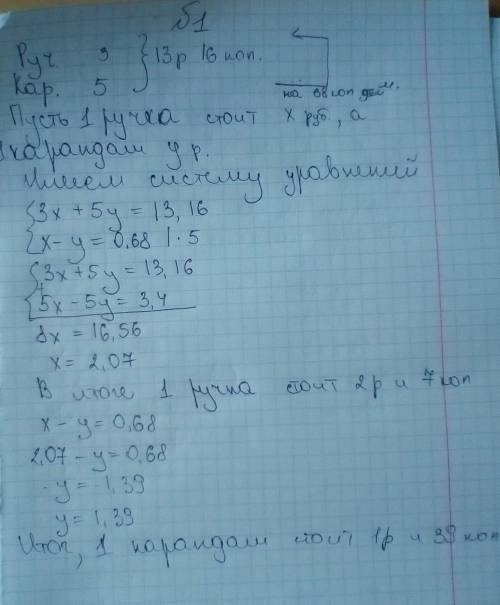 б1
Руч. 3 } 13 р 16 коп.
Кар. 5
на 68 коп деш.
Пусть 1 ручка стоит x руб, а
1 карандаш y р.
Имеем систему уравнений
{3x + 5y = 13,16
{x - y = 0,68 | · 5
{3x + 5y = 13,16
+
{5x - 5y = 3,4
8x = 16,56
x = 2,07
В итоге 1 ручка стоит 2р и 7 коп
x - y = 0,68
2,07 - y = 0,68
-y = -1,39
y = 1,39
Итог, 1 карандаш стоит 1р и 39 коп